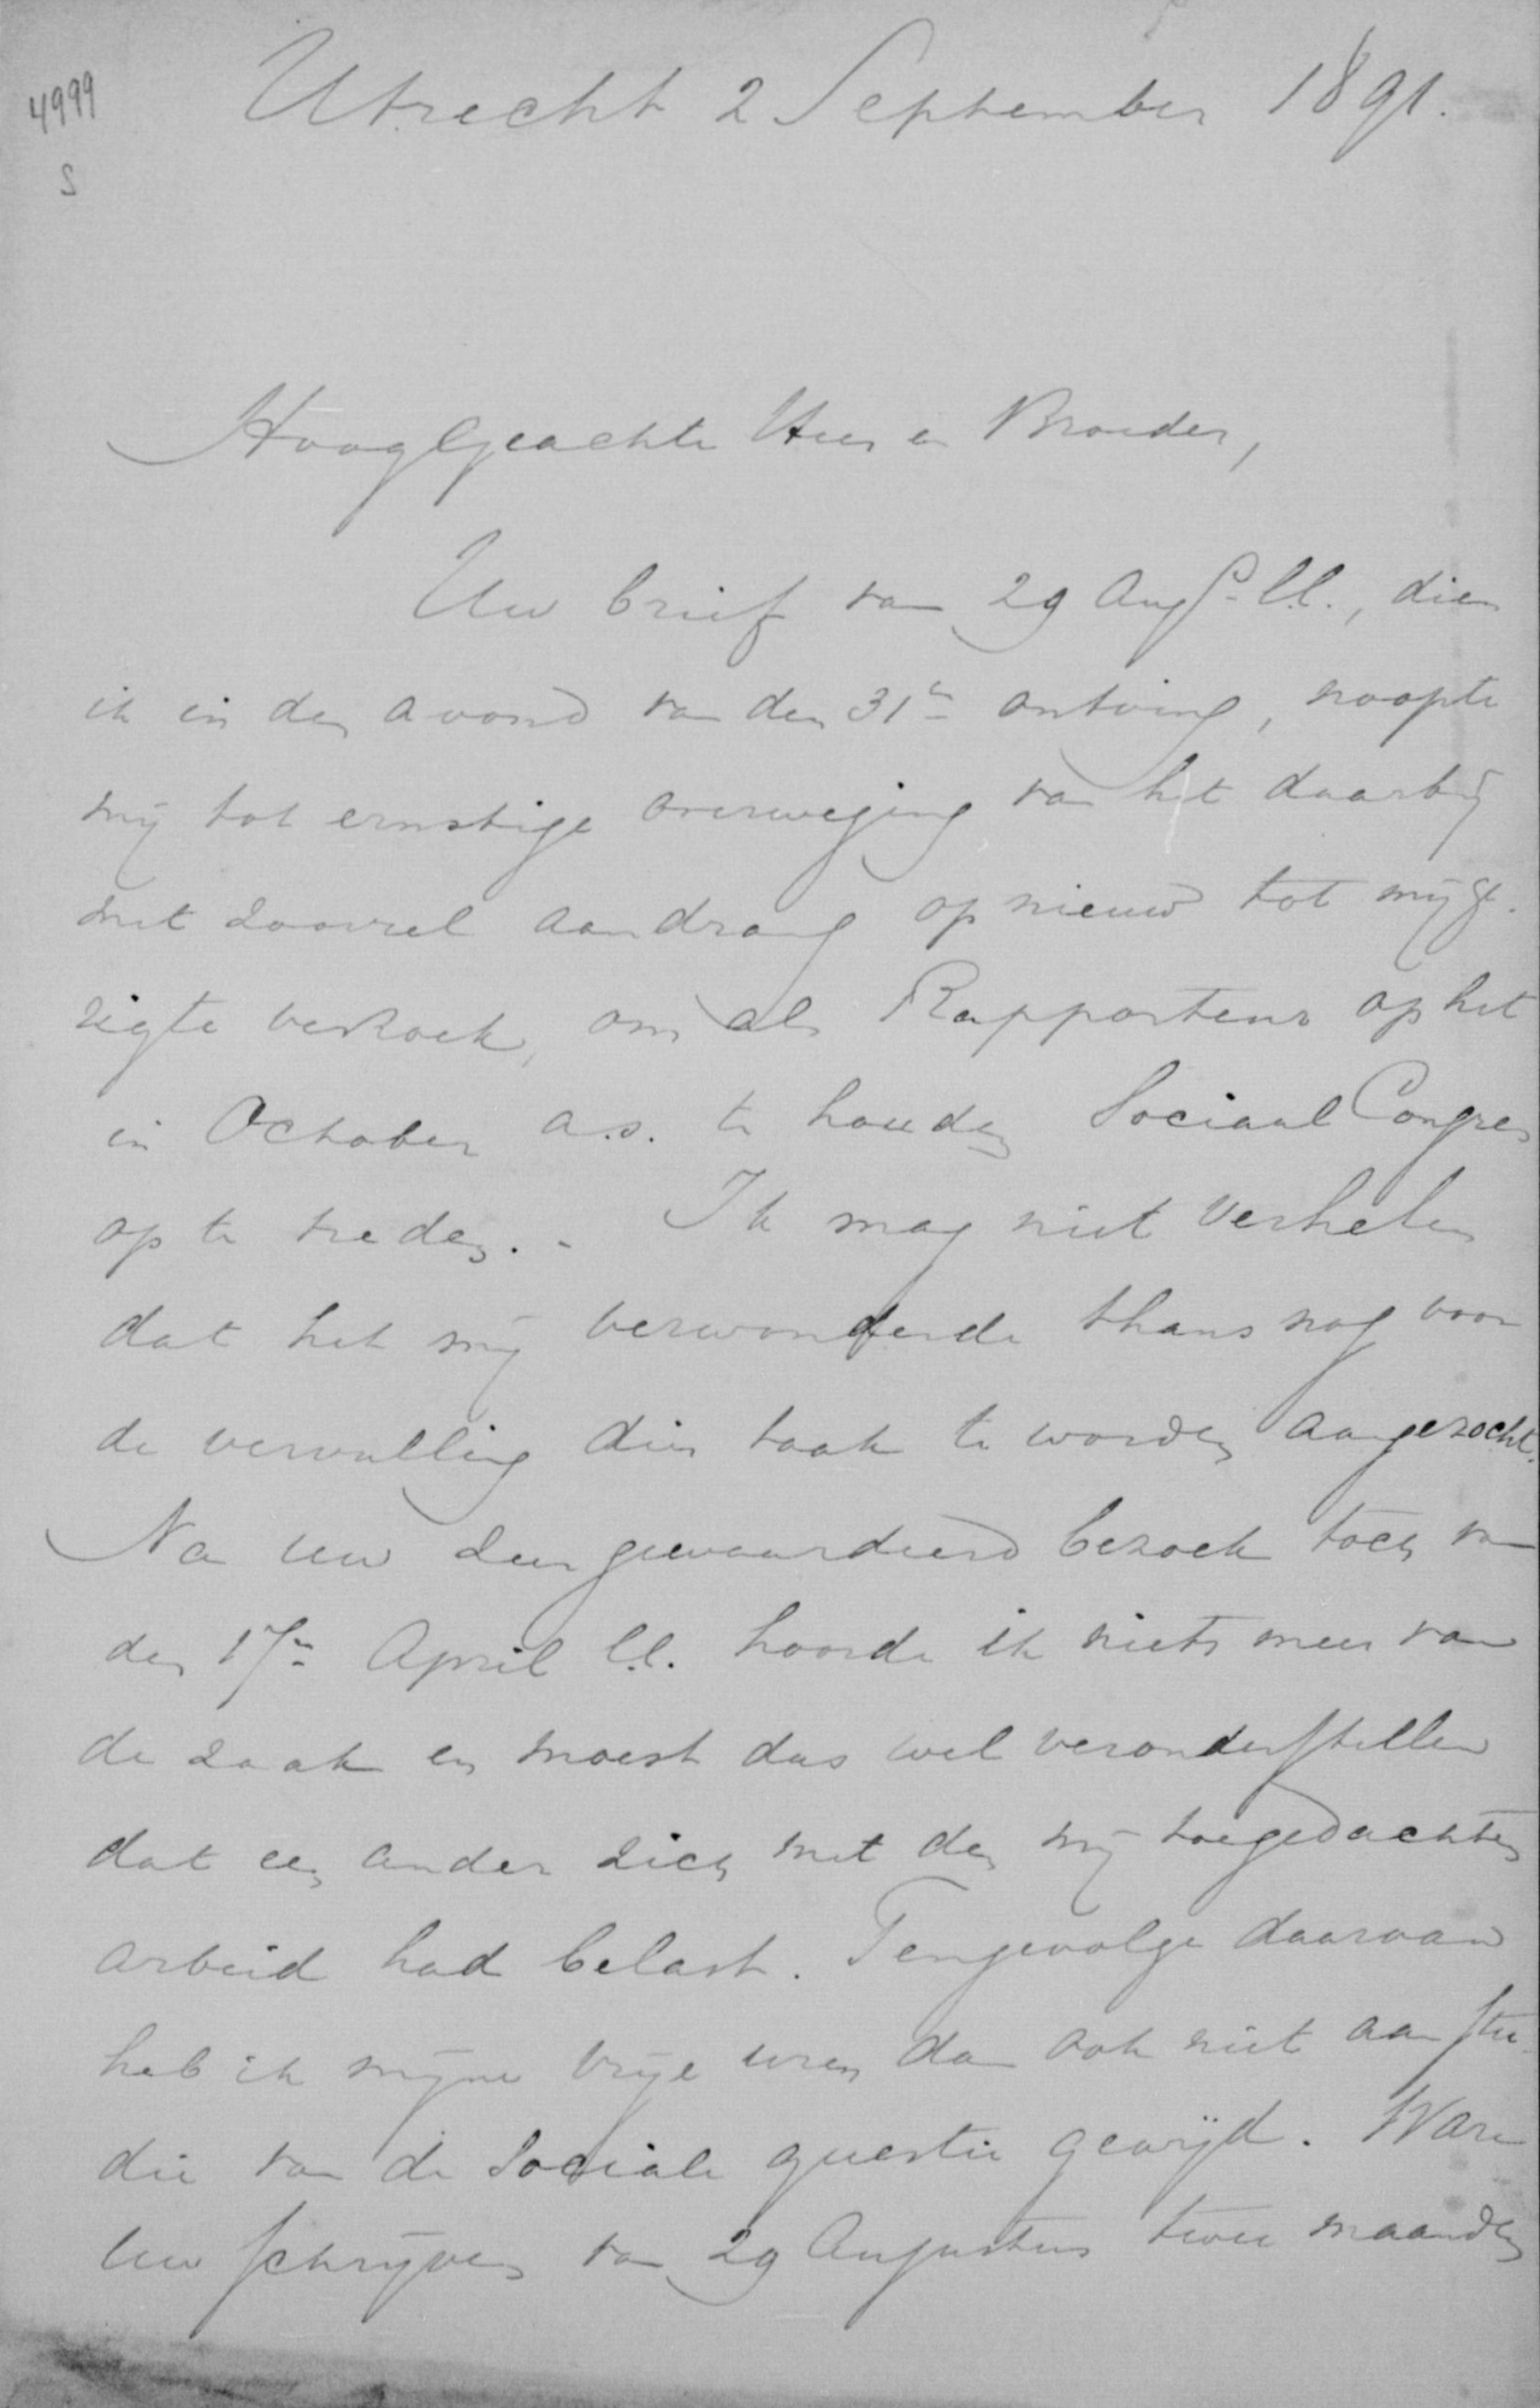 4999
S
Utrecht 2 September 1891.
Hooggeachte Heer en Broeder,
Uw brief van 29 Augs. l.l., dien
ik in den avond van den 31n ontving, noopte
mij tot ernstige overweging van het daarbij
met zooveel aandrang op nieuw tot mij ge-
rigte verzoek, om als Rapporteur op het
in October a.s. te houden Sociaal Congres
op te treden. - Ik mag niet verhelen
dat het mij verwonderde thans nog voor
de vervulling dier taak te worden aangezocht.
Na uw zeer gewaardeerd bezoek toch van
den 17n April l.l. hoorde ik niets meer van
de zaak en moest dus wel veronderstellen
dat een ander zich met den mij toegedachten
arbeid had belast. Tengevolge daarvan
heb ik mijne vrije uren dan ook niet aan stu-
die van de Sociale questie gewijd. Ware
uw schrijven van 29 Augustus twee maanden